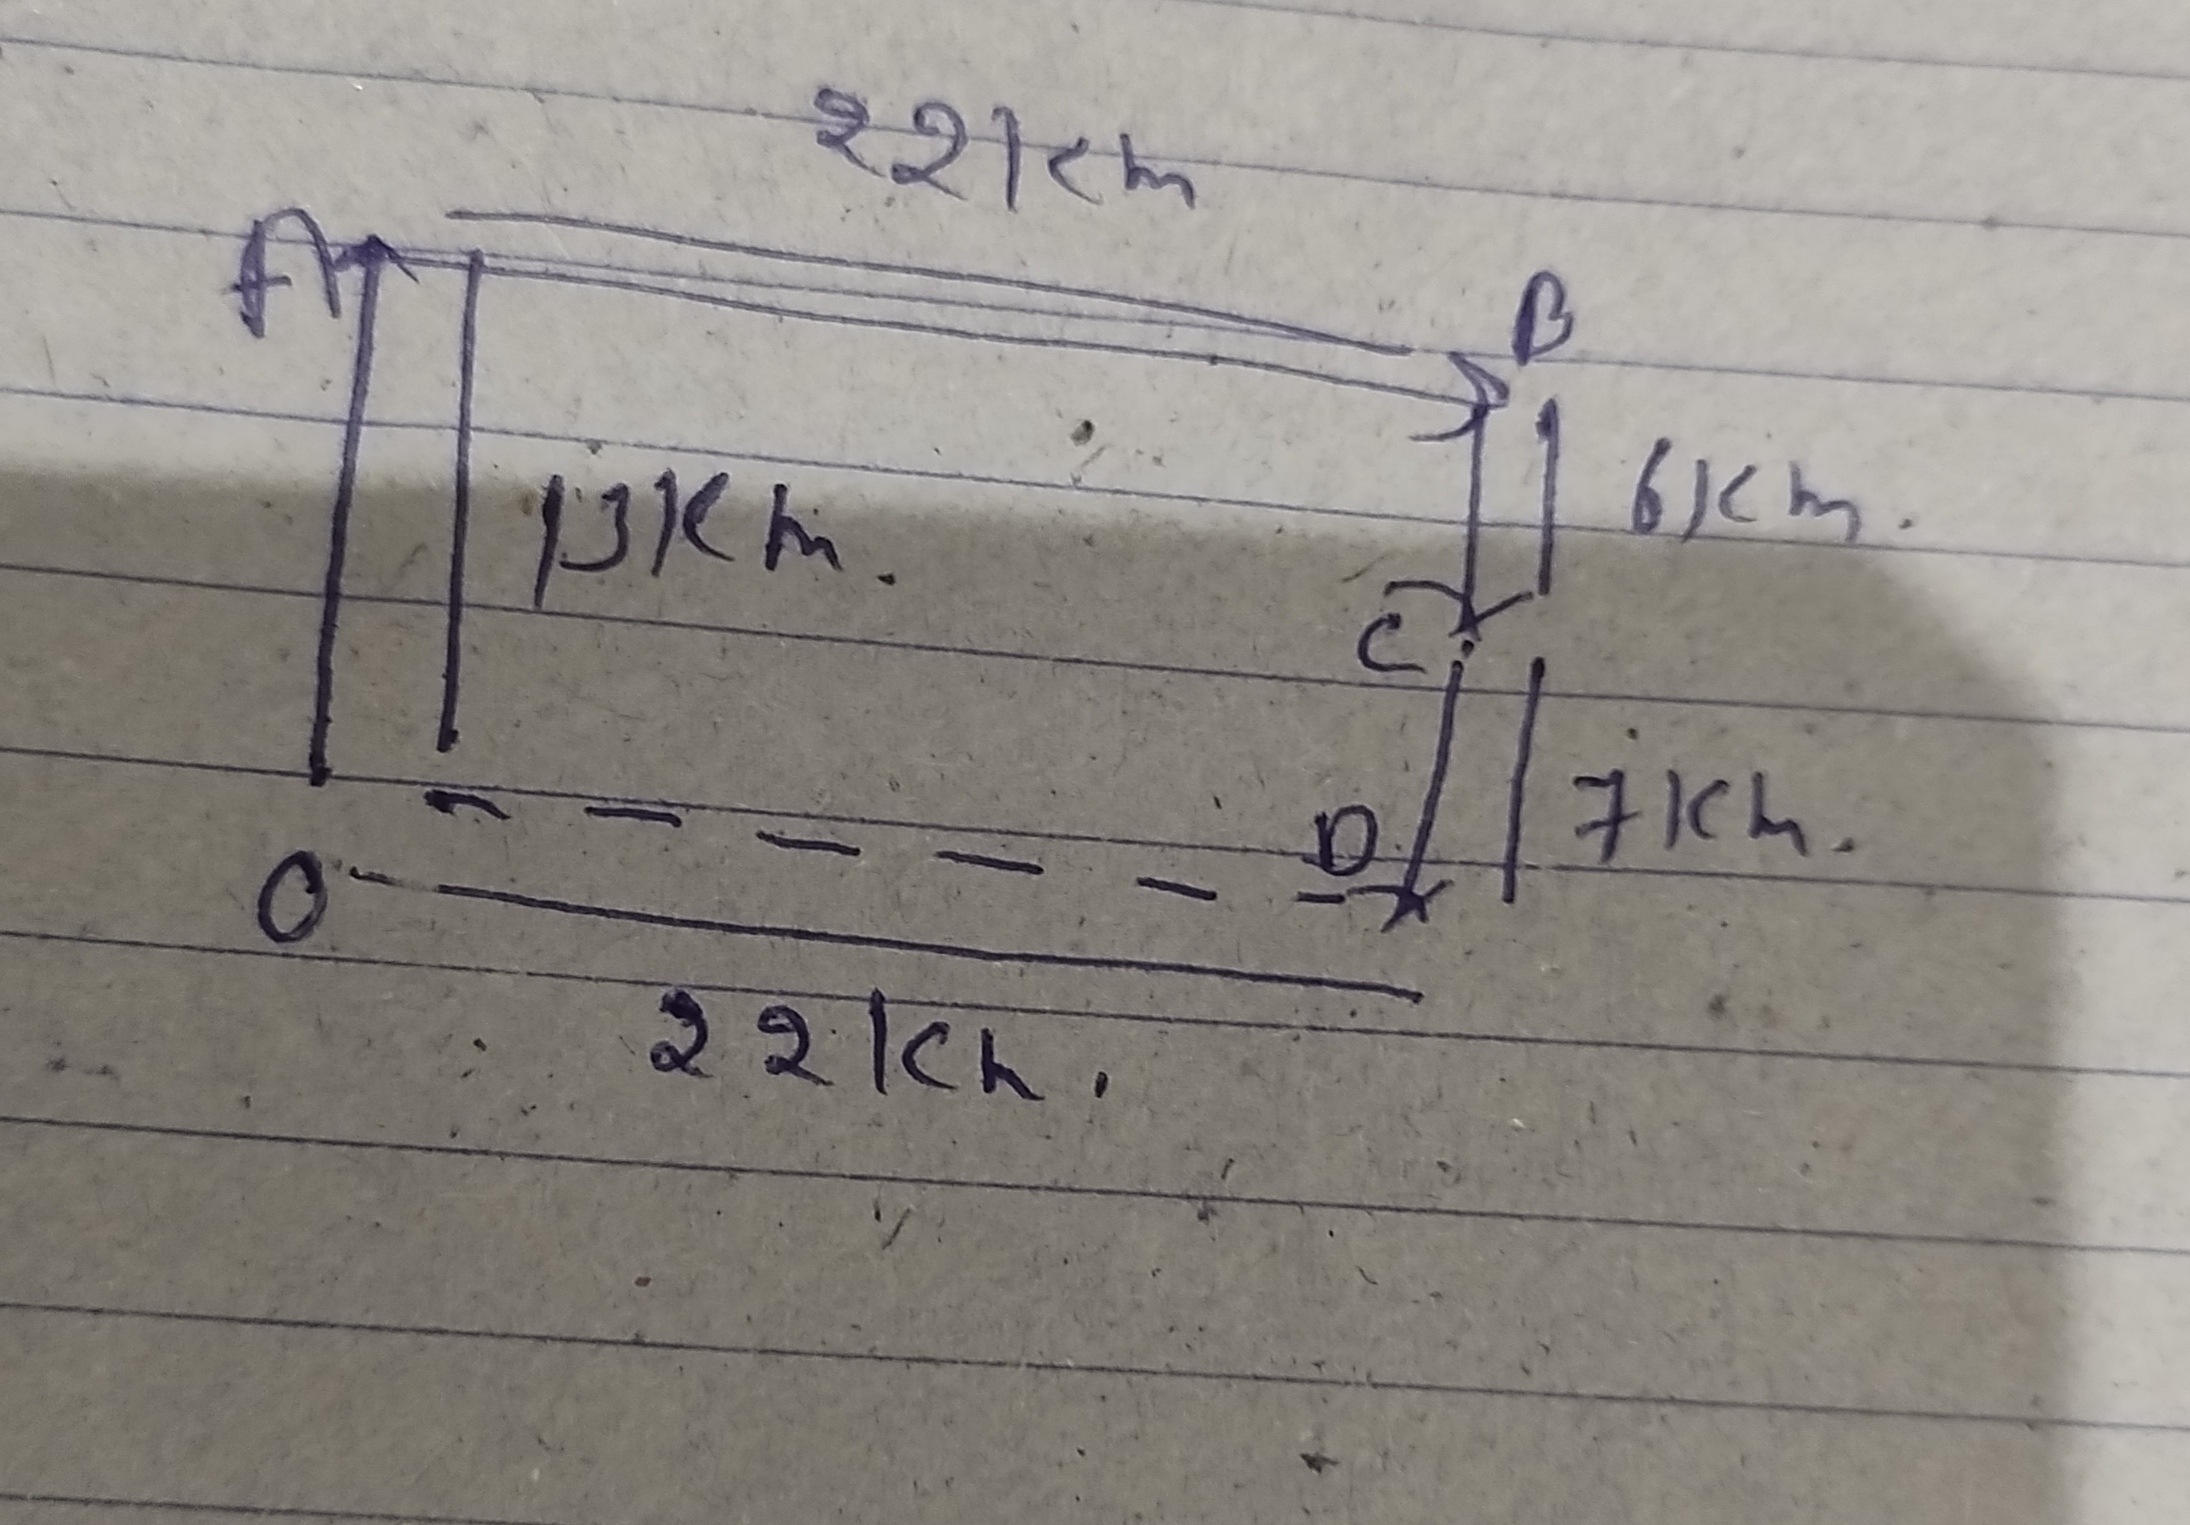 22km
A
B
13Km.
6Km.
C
D
7Km.
O
22Km.